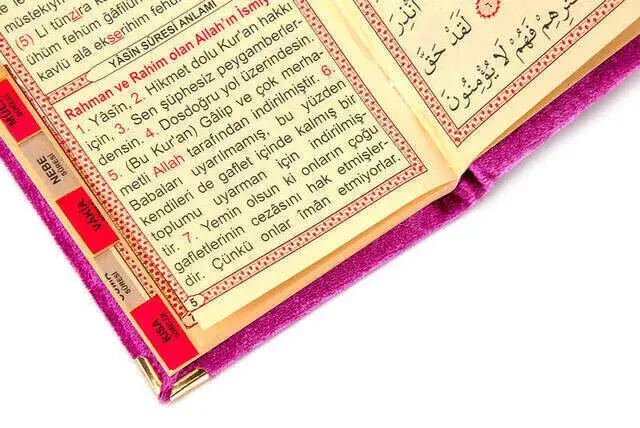 (5) Li tünzira
ühüm fehüm ğâfilûn
kavlü alâ ekserihim fehüm
YÂSİN SURESİ ANLAMI
Rahman ve Rahim olan Allah'ın ismiy
1. Yâsîn, 2. Hikmet dolu Kur'an hakkı
için, 3. Sen şüphesiz peygamberler-
densin. 4. Dosdoğru yol üzerindesin.
5. (Bu Kur'an) Gâlip ve çok merha-
metli Allah tarafından indirilmiştir. 6.
Babaları uyarılmamış, bu yüzden
kendileri de gaflet içinde kalmış bir
toplumu uyarman için indirilmiş-
tir. 7. Yemin olsun ki onların çoğu
gafletlerinin cezâsını hak etmişler-
dir. Çünkü onlar îmân etmiyorlar.
5
لَقَدْ حَقَّ
فَهُمْ لَا يُؤْمِنُونَ
NEBE
SURESİ
VAKIA
KISA
SURELER